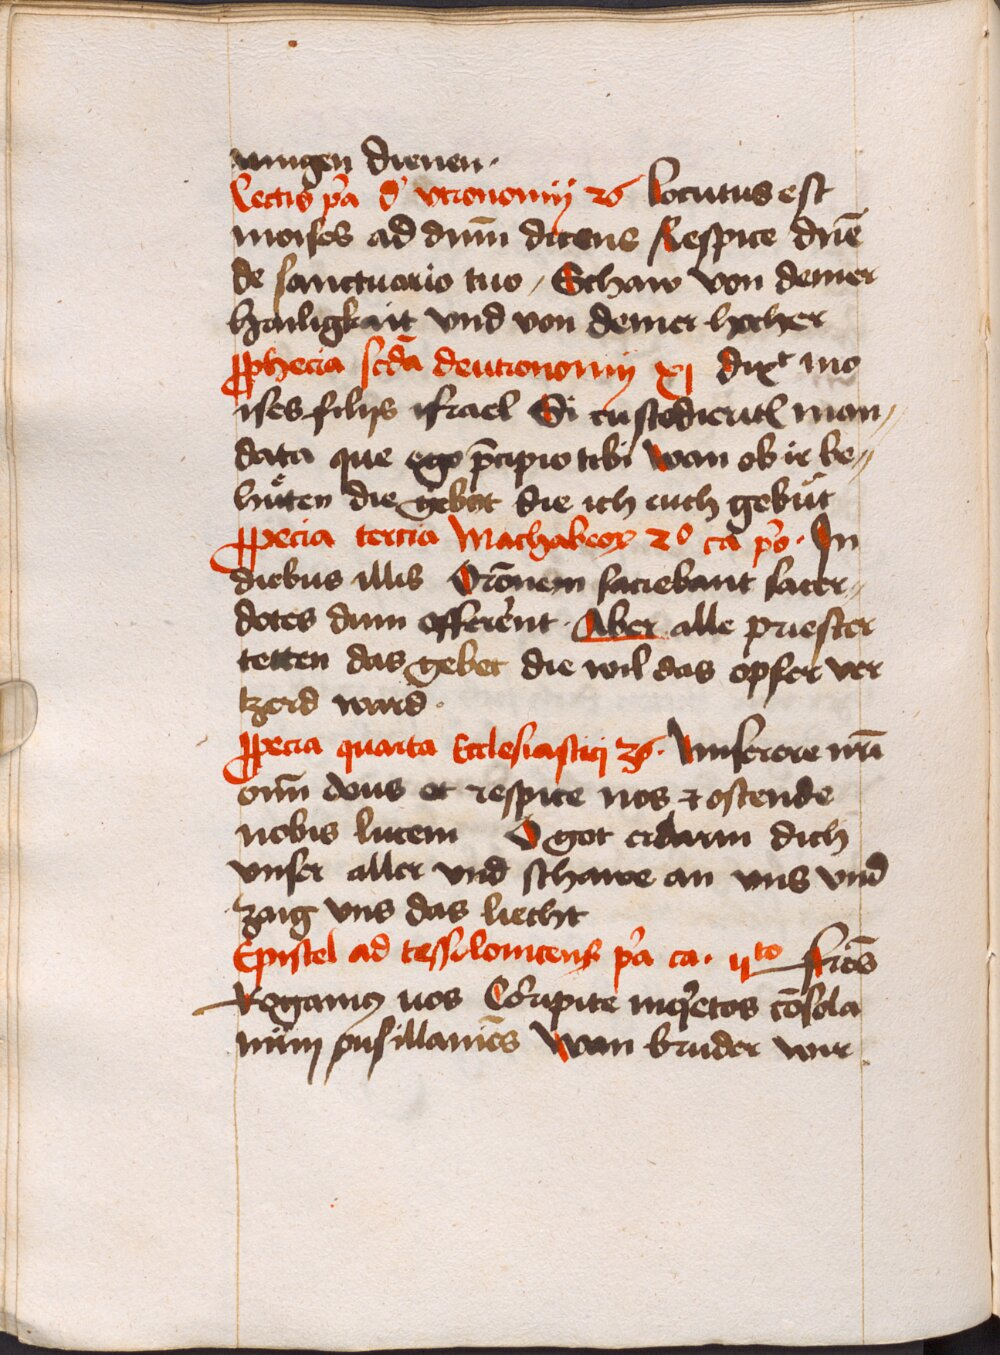 mugen dienen.
Lectio p̄a deutronomij 26 Locutus est
moises ad dnm̄ dicens Respice dnē
de sanctuario tuo / Schaw von deiner
hailigkait vnd von deiner hocher
Pphecia scd̄a deutronomij xj dixt mo
ises filijs israel Si custodieritꝭ man//
data que ego p̄cipio tibi wan ob ir be//
hůten die gebot die ich euch gebüt
Pphecia tercia Machabeoꝝ 2º ca pº. In
diebus illis Orōnem faciebant sacer//
dotes dum offerēnt. Aber alle priester
tetten das gebet die wil das opfer ver
zerd ward.
Pphecia quarta Ecclesiastici 36. Miserere nr̄i
om̄ deus et respice nos ⁊ ostende
nobis lucem O got erbarm dich
vnser aller vnd schawe an vns vnd
zaig vns das liecht
Epistel ad tessolonicens p̄a ca. vto frēs
Rogamꝰ uos Corripite inqͥetos cōsola
mini pusillanīes Wan bruder wir